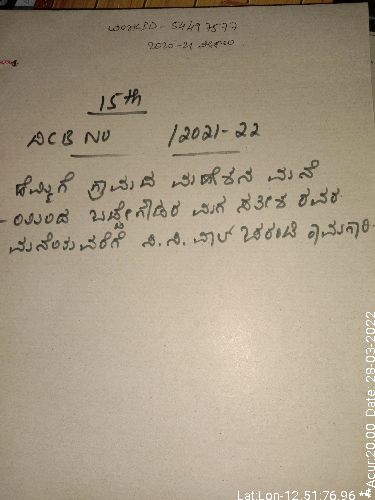 WORKID - 54497577
2020-21
15th
DCB NO /2021-22
ಹೆಮ್ಮಿಗೆ ಗ್ರಾಮದ ಮಹೇಶನ ಮನೆ
-ಯಿಂದ ಬಚ್ಚೇಗೌಡರ ಮಗ ಸತೀಶ ರವರ
ಮನೆಯವರೆಗೆ ಸಿ.ಸಿ. ವಾಲ್ ಚರಂಡಿ ಕಾಮಗಾರಿ.
Lat:Lon-12.51:76.96
Acur:20.00 Date: 28-03-2022